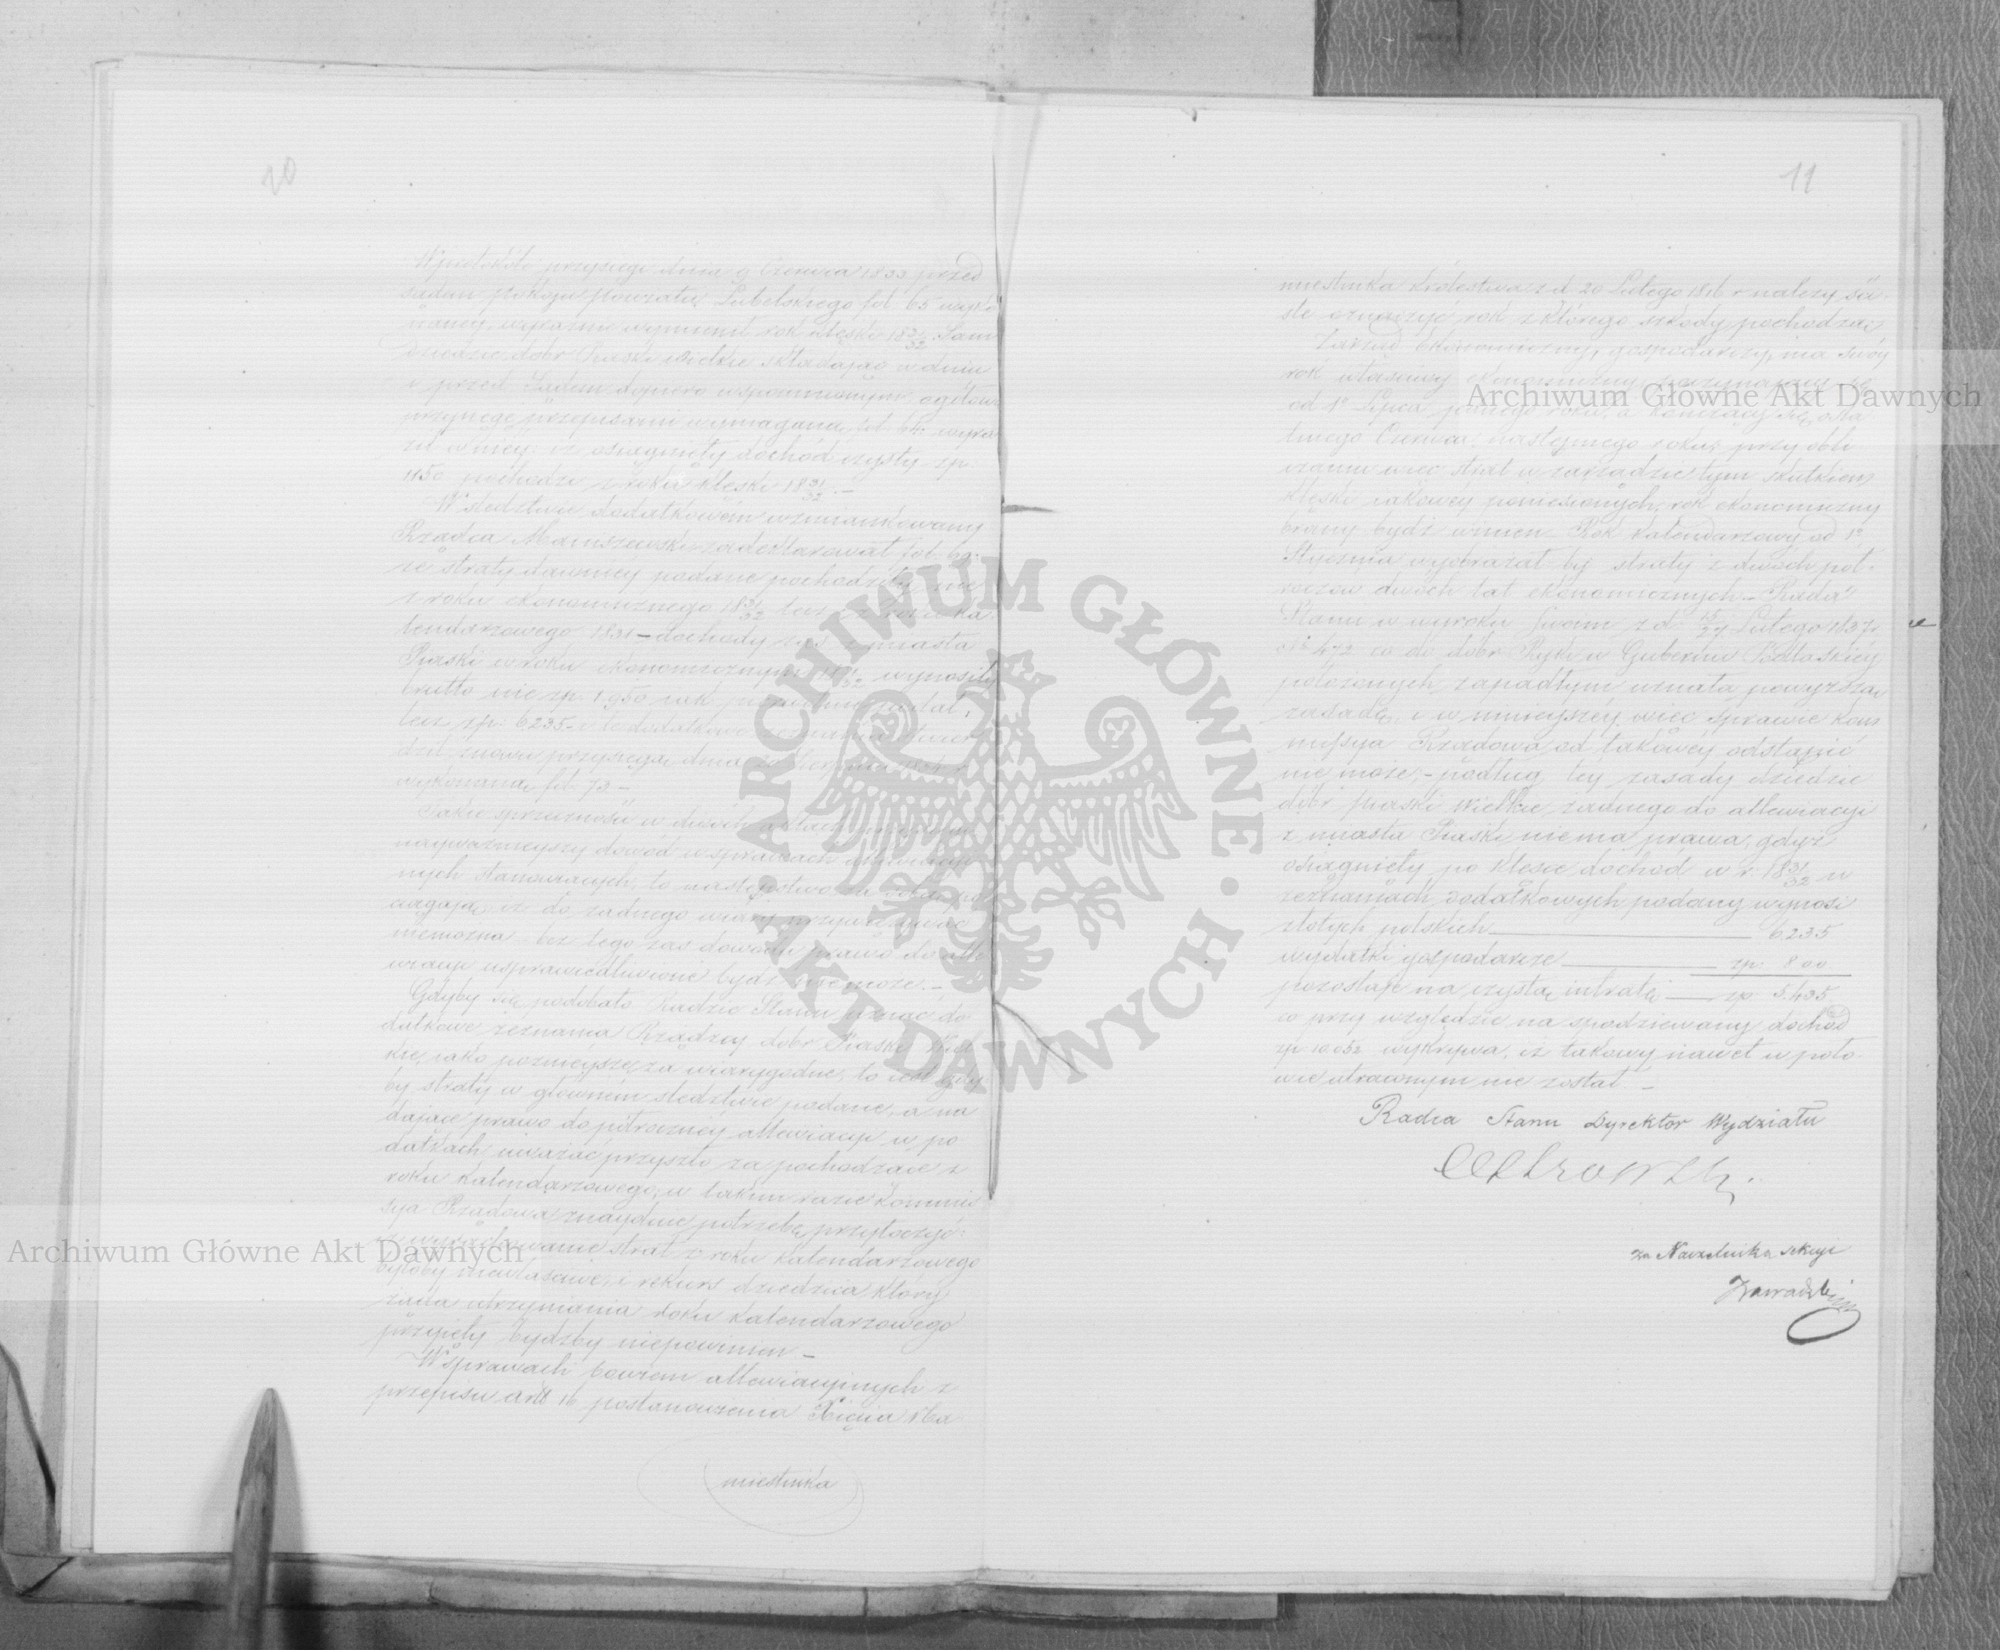 10
W protokóle przysięgi dnia 9 Czerwca 1833 przed
Sądem Pokoju powiatu Lubelskiego fol. 65 wyko
naney, wyraźnie wymienił rok klęski 18 31/32. Sam
Dziedzic dobr Piaski wielkie składając w dniu
i przed Sądem dopiero wspomnionym ogólową
przysięgę przepisami wymaganą, fol. 64 wyra
ził w niey: iż osiągnięty dochód czysty zp.
1150 pochodzi z roku klęski 18 31/32. —
W śledztwie dodatkowem wzmiankowany
Rządca Maniszewski zadeklarował fol. 69.
że straty dawniey podane pochodziły nie
z roku ekonomicznego 18 31/32 lecz z roku ka
lendarzowego 1831 — dochody zaś z miasta
Piaski w roku ekonomicznym 18 31/32 wynosiły
brutto nie zp. 1,950 jak poprzednio podał,
lecz zp. 6235 — i te dodatkowe zeznania stwier
dził znowu przysięgą dnia
wykonaną fol. 73 —
Takie sprzeczności w dwóch aktach
nayważnieyszy dowód w sprawach allewiacyi
nych stanowiących, to następstwo za sobą po
ciągają, iż do żadnego wiary przywiązywać
niemożna — bez tego zaś dowodu prawo do alle
wiacyi usprawiedliwione bydź nie może. —
Gdyby się podobało Radzie Stanu uznać do
datkowe zeznania Rządzcy dobr Piaski Wiel
kie, jako poznieysze za wiarygodne, to jest gdy
by straty w głównem śledztwie podane, a na
dające prawo do półroczney allewiacyi w po
datkach uważać przyszło za pochodzące z
roku kalendarzowego, w takim razie Kommis
sya Rządowa znayduie potrzebę przytoczyć:
iż wyrachowanie strat z roku kalendarzowego
byłoby niewłaściwe, i rekurs dziedzica który
żąda utrzymania roku kalendarzowego
przyięty bydźby niepowinien —
W sprawach bowiem allewiacyinych z
przepisu art. 16 postanowienia Xięcia Na
miestnika
11
miestnika Królestwa z d. 20 Lutego 1816 r. należy ści
śle oznaczyć rok z którego szkody pochodzą;
Zarząd ekonomiczny, gospodarczy, ma swóy
rok właściwy ekonomiczny poczynający się
od 1o Lipca jednego roku, a kończący się osta
tniego Czerwca następnego roku; przy obli
czaniu więc strat w zarządzie tym skutkiem
klęski iakowey poniesionych, rok ekonomiczny
brany bydź winien. Rok kalendarzowy od 1o
Stycznia wyobrażał by straty z dwóch pół
roczów dwóch lat ekonomicznych — Rada
Stanu w wyroku swoim z d. 15/27 Lutego 1837
No 472 co do dobr Ryki w Gubernii Podlaskiey
położonych, zapadłym uznała powyższą
zasadę, i w ninieyszey więc sprawie Kom
missya Rządowa od takowey odstąpić
nie może; — podług tey zasady dziedzic
dóbr Piaski Wielkie żadnego do allewiacyi
z miasta Piaski niema prawa, gdyż
osiągnięty po klesce dochod w r. 18 31/32 w
zeznaniach dodatkowych podany wynosi
złotych polskich — 6235
wydatki gospodarcze — zp. 800
pozostaje na czystą intratę — zp. 5,435
co przy względzie na spodziewany dochód
zp. 10,052 wykrywa, iż takowy nawet w poło
wie utraconym nie został. —
Radca Stanu Dyrektor Wydziału
za Naczelnika Sekcyi
Zawadzki
Archiwum Główne Akt Dawnych
Archiwum Główne Akt Dawnych
· ARCHIWUM GŁÓWNE · AKT DAWNYCH